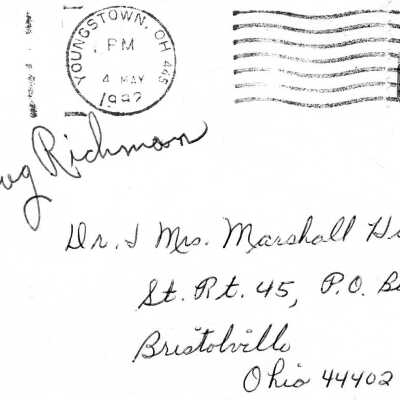 YOUNGSTOWN, OH 445
PM
4 MAY
1992
Richman
Dr. & Mrs. Marshall
St. Rt. 45, P.O.
Bristolville
Ohio 44402